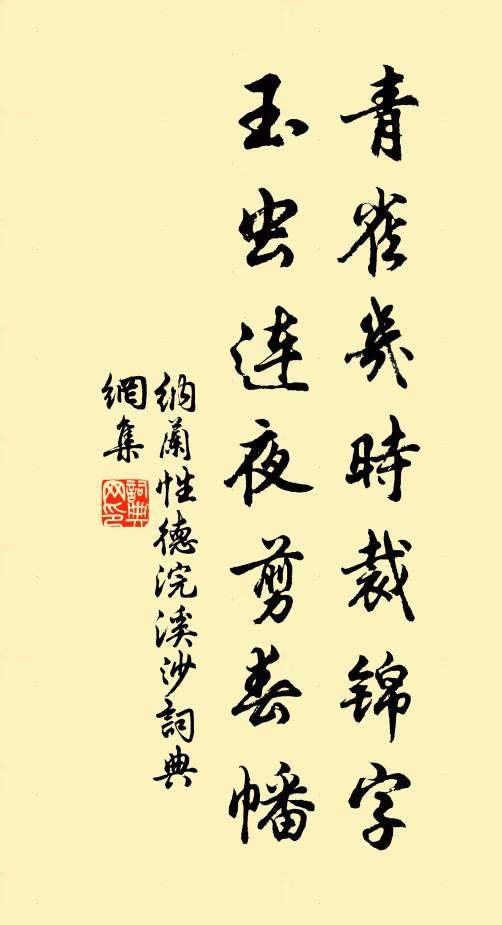 青雀幾時裁锦字
玉虫連夜剪春幡
納蘭性德浣溪沙詞典
網集
詞典
网印